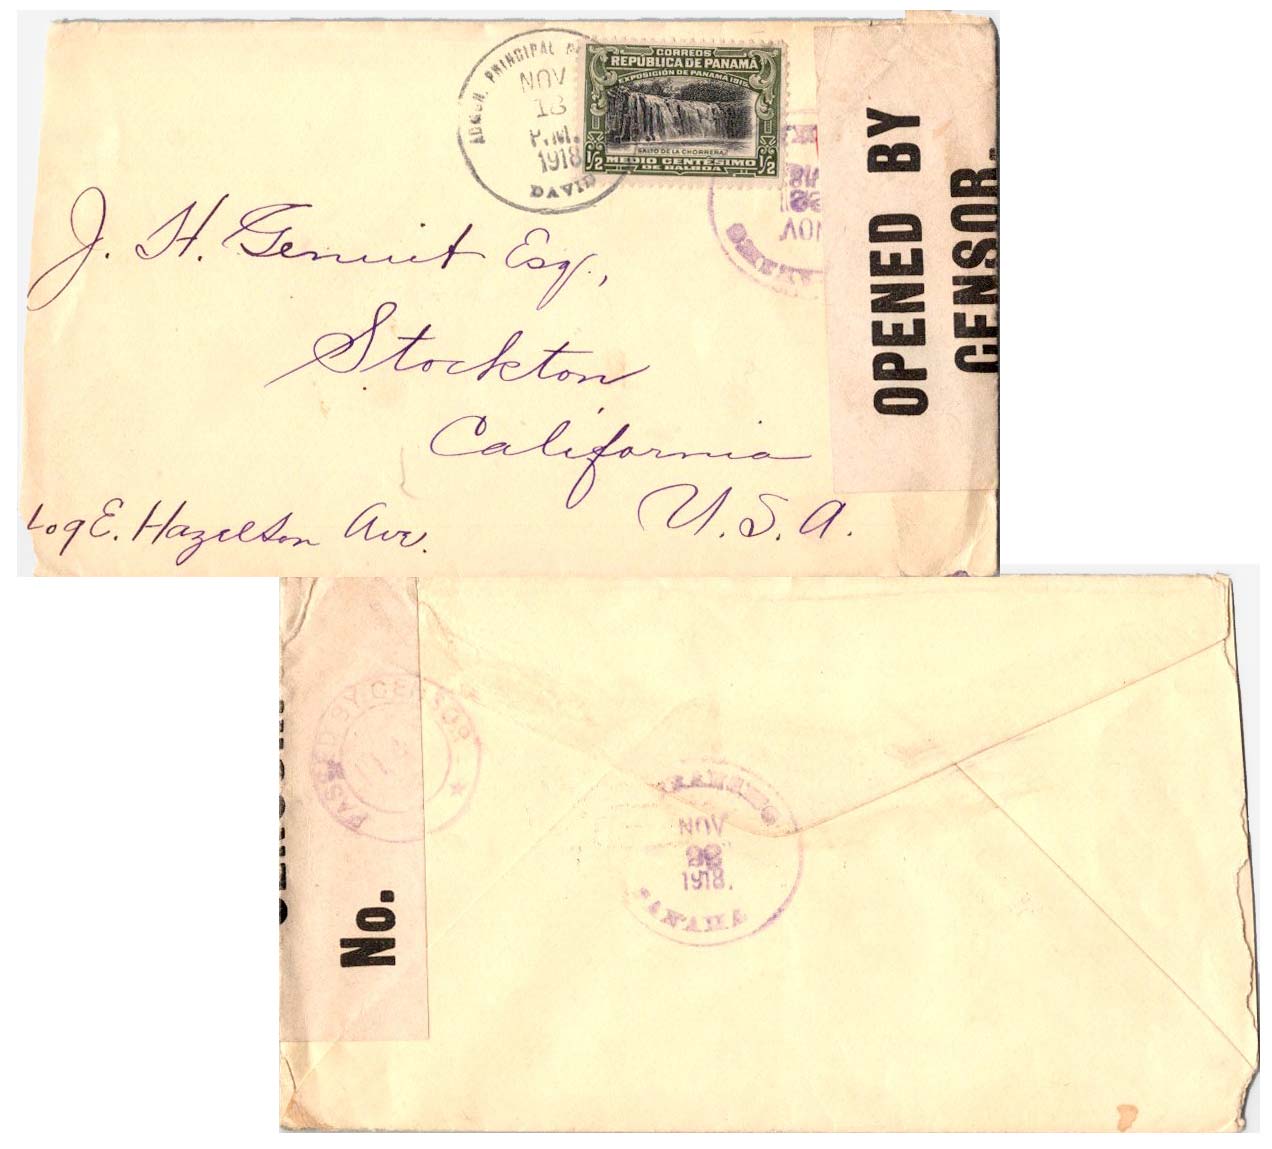 ADMON. PRINCIPAL
NOV
18
P.M.
1918
DAVID
CORREOS
REPÚBLICA DE PANAMÁ
EXPOSICIÓN DE PANAMÁ 1915
SALTO DE LA CHORRERA
1/2 MEDIO CENTÉSIMO 1/2
DE BALBOA
NOV
OPENED BY
CENSOR.
J. H. Genuit Esq.,
Stockton
California
U. S. A.
109 E. Hazelton Ave.
PASSED BY CENSOR
No.
TRANSITO
NOV
1918.
PANAMA